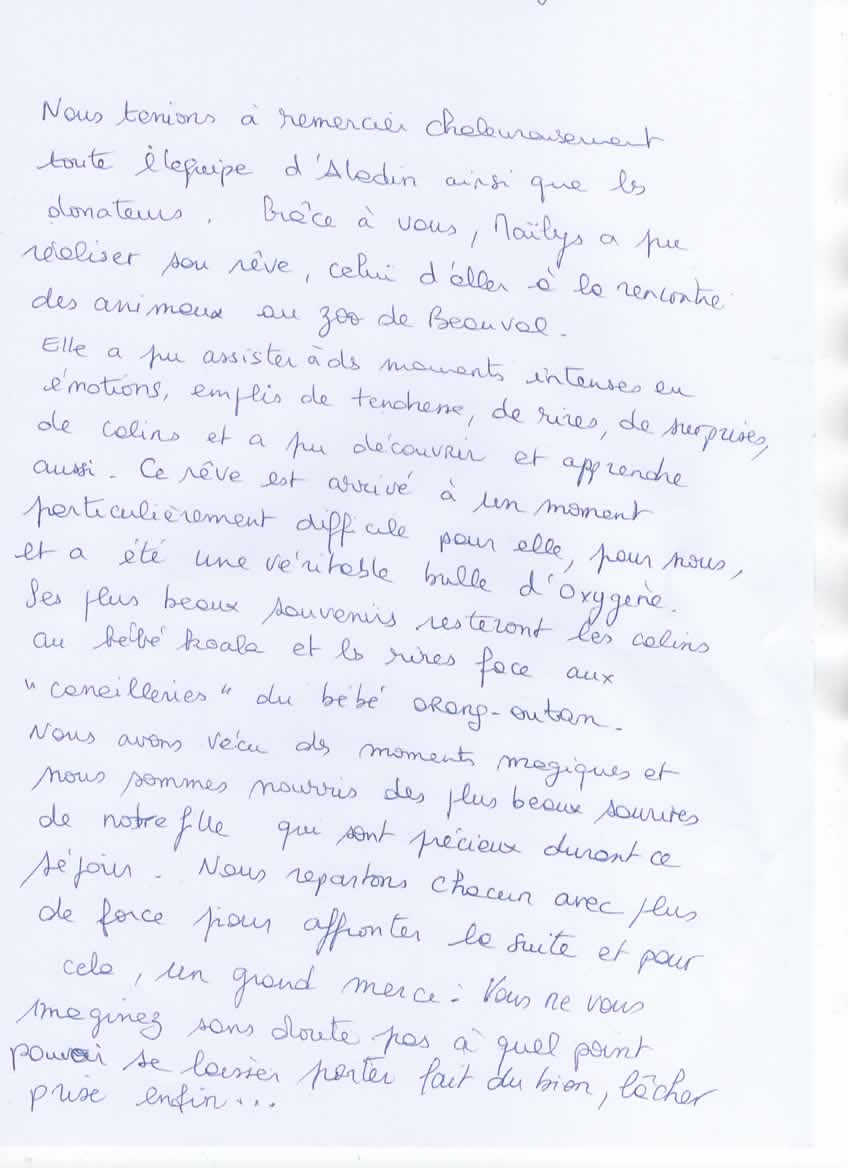 Nous tenions à remercier chaleureusement
toute l'équipe d'Aladin ainsi que les
donateurs. Grâce à vous, Maïlys a pu
réaliser son rêve, celui d'aller à la rencontre
des animaux au zoo de Beauval.
Elle a pu assister à ds moments intenses en
émotions, emplis de tendresse, de rires, de surprises,
de calins et a pu découvrir et apprendre
aussi. Ce rêve est arrivé à un moment
particulièrement difficile pour elle, pour nous,
et a été une véritable bulle d'oxygène.
Ses plus beaux souvenirs resteront les calins
au bébé koala et ls rires face aux
"caneilleries" du bébé orang-outan.
Nous avons vécu ds moments magiques et
nous sommes nourris des plus beaux sourires
de notre fille qui sont précieux durant ce
séjour. Nous repartons chacun avec plus
de force pour affronter la suite et pour
cela, un grand merci. Vous ne vous
imaginez sans doute pas à quel point
pouvoi se laisser porter fait du bien, lâcher
prise enfin...